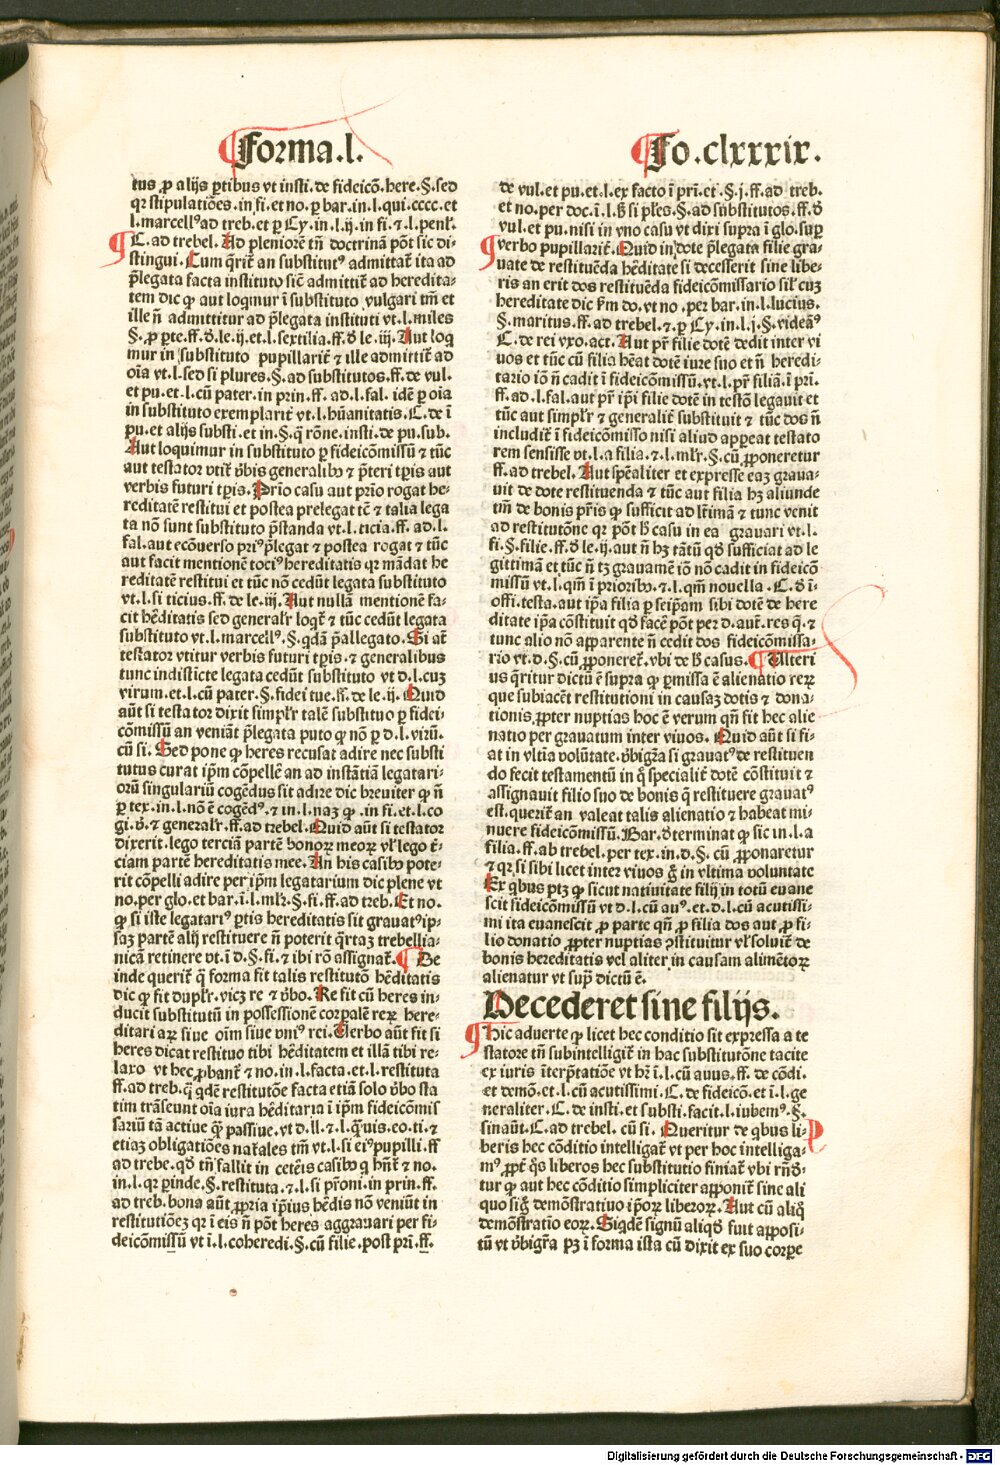 Forma.l.
Fo.clxxxix.
tus ꝓ alijs ꝑtibus vt insti.de fideicō.here.§.sed
qꝛ stipulatiōes.in fi.et no.ꝑ bar.in.l.qui.cccc.et
l.marcellꝰad treb.et ꝑ Cy.in.l.ij.in fi.⁊.l.penl̓.
C.ad trebel. Ad pleniorē tn̄ doctrinā pōt sic di-
stingui.Cum q̄rit̄ an substitutꝰ admittat̄ ita ad
p̄legata facta instituto sicē admittit̄ ad heredita-
tem dic ꝙ aut loqimur ī substituto vulgari tm̄ et
ille n̄ admittitur ad p̄legata instituti vt.l.miles
§.ꝓ ꝑte.ff.d̄.le.ij.et.l.sextilia.ff.d̄ le.iij.Aut loq̄
mur in substituto pupillarit̄ ⁊ ille admittit̄ ad
oīa vt.l.sed si plures.§.ad substitutos.ff.de vul.
et pu.et.l.cū pater.in prin.ff.ad.l.fal.idē ꝑ oīa
in substituto exemplarit̄ vt.l.hūanitatis.C.de ī
pu.et alijs substi.et in.§.q̄ rōne.insti.de pu.sub.
Aut loquimur in substituto ꝑ fideicōmissū ⁊ tūc
aut testator vtit̄ v̄bis generalibꝰ ⁊ p̄teri tꝑis aut
verbis futuri tꝑis.Prīo casu aut prīo rogat he-
reditatē restitui et postea prelegat tē ⁊ talia lega
ta nō sunt substituto p̄standa vt.l.ticia.ff.ad.l.
fal.aut ecōuerso priꝰp̄legat ⁊ postea rogat ⁊ tūc
aut facit mentionē tociꝰhereditatis qꝛ mādat he
reditatē restitui et tūc nō cedūt legata substituto
vt.l.si ticius.ff.de le.iij.Aut nullā mentionē fa-
cit hēditatis sed general̓r loqt̄ ⁊ tūc cedūt legata
substituto vt.l.marcellꝰ.§.qdā p̄allegato.Si at̄
testator vtitur verbis futuri tꝑis.⁊ generalibus
tunc indisticte legata cedūt substituto vt d.l.cuꝫ
virum.et.l.cū pater.§.fidei tue.ff.de le.ij.Quid
aūt si testator dixit simpl̓r talē substituo ꝑ fidei-
cōmissū an veniāt p̄legata puto ꝙ nō ꝑ d.l.virū.
cū si.Sed pone ꝙ heres recusat adire nec substi
tutus curat ip̄m cōpellē an ad instātiā legatari-
orū singulariū cogēdus sit adire dic breuiter ꝙ n̄
ꝑ tex.in.l.nō ē cogēdꝰ.⁊ in.l.naꝫ ꝙ.in fi.et.l.co
gi.v̄.⁊ general̓r.ff.ad trebel.Quid aūt si testator
dixerit.lego terciā partē bonoꝝ meoꝝ vl̓ lego t̄-
ciam partē hereditatis mee.In his casibꝰ pote-
rit cōpelli adire per ip̄m legatarium dic plene vt
no.per glo.et bar.ī.l.ml̓r.§.fi.ff.ad treb.Et no.
ꝙ si iste legatariꝰ ꝑtis hereditatis sit grauatꝰip-
saꝫ partē alij restituere n̄ poterit q̄rtaꝫ trebellia-
nicā retinere vt.ī d.§.fi.⁊ ibi rō assignat̄. De
inde querit̄ q̄ forma fit talis restitutō hēditatis
dic ꝙ fit dupl̓r.vicꝫ re ⁊ v̄bo.Re fit cū heres in-
ducit substitutū in possessionē corꝑalē reꝝ here-
ditariaꝝ siue oīm siue vniꝰ rei.Verbo aūt fit si
heres dicat restituo tibi hēditatem et illā tibi re-
laxo vt hec ꝓbant̄ ⁊ no.in.l.facta.et.l.restituta
ff.ad treb.q̄ qdē restitutōe facta etiā solo v̄bo sta
tim trāseunt oīa iura hēditaria ī ip̄m fideicōmis
sariū tā actiue ꝙ̄ passiue.vt d.ll.⁊ l.q̄uis.eo.ti.⁊
etiaꝫ obligatiōes nat̄ales tm̄ vt.l.si eiꝰpupilli.ff
ad trebe.qd̄ tn̄ fallit in ceteris casibꝰ q̄ hn̄t̄ ⁊ no.
in.l.qꝛ ꝑinde.§.restituta.⁊.l.si p̄roni.in prin.ff.
ad treb.bona aūt ꝓpria ip̄ius hēdis nō veniūt in
restitutiōeꝫ qꝛ ī eis n̄ pōt heres aggrauari per fi-
deicōmissū vt ī.l.coheredi.§.cū filie.post prī.ff.
de vul.et pu.et.l.ex facto ī prī.et.§.j.ff.ad treb.
et no.per doc.ī.l.ƀ si pl̓es.§.ad substitutos.ff.d̄
vul.et pu.nisi in vno casu vt dixi supra ī glo.suꝑ
verbo pupillarit̄.Quid in dote p̄legata filie gra-
uate de restituēda hēditate si decesserit sine libe-
ris an erit dos restituēda fideicōmissario sil̓ cuꝫ
hereditate dic ẜm do.vt no.per bar.in.l.lucius.
§.maritus.ff.ad trebel.⁊.ꝑ Cy.in.l.j.§.videāꝰ
C.de rei vxo.act.Aut pr̄ filie dotē dedit inter vi
uos et tūc cū filia hēat dotē iure suo et n̄ heredi-
tario iō n̄ cadit ī fideicōmissū.vt.l.pr̄ filiā.ī pri.
ff.ad.l.fal.aut pr̄ ip̄i filie dotē in testō legauit et
tūc aut simpl̓r ⁊ generalit̄ substituit ⁊ tūc dos n̄
includit̄ ī fideicōmisso nisi aliud apꝑeat testato
rem sensisse vt.l.a filia.⁊.l.ml̓r.§.cū ꝓponeretur
ff.ad trebel.Aut spēaliter et expresse eaꝫ graua-
uit de dote restituenda ⁊ tūc aut filia hꝫ aliunde
tm̄ de bonis pr̄is ꝙ sufficit ad lr̄imā ⁊ tunc venit
ad restitutōne qꝛ pōt ƀ casu in ea grauari vt.l.
fi.§.filie.ff.d̄ le.ij.aut n̄ hꝫ tātū qd̄ sufficiat ad le
gittimā et tūc n̄ tꝫ grauamē iō nō cadit in fideicō
missū vt.l.qm̄ ī prioribꝰ.⁊.l.qm̄ nouella.C.d̄ ī-
offi.testa.aut ip̄a filia ꝑ seip̄am sibi dotē de here
ditate ip̄a cōstituit qd̄ facē pōt per d.aut̄.res q̄.⁊
tunc alio nō apparente n̄ cedit dos fideicōmissa-
rio vt.d.§.cū ꝓponeret̄.vbi de ƀ casus. Vlteri
us q̄ritur dictū ē supra ꝙ ꝑmissa ē alienatio reꝝ
que subiacēt restitutioni in causaꝫ dotis ⁊ dona-
tionis ꝓpter nuptias hoc ē verum qn̄ fit hec alie
natio per grauatum inter viuos.Quid aūt si fi-
at in vltīa volūtate.v̄bigr̄a si grauatꝰde restituen
do fecit testamentū in q̄ specialit̄ dotē cōstituit ⁊
assignauit filio suo de bonis q̄ restituere grauatꝰ
est.querit̄ an valeat talis alienatio ⁊ habeat mi-
nuere fideicōmissū.Bar.d̄terminat ꝙ sic in.l.a
filia.ff.ab trebel.per tex.in.d.§.cū ꝓponaretur
⁊ qꝛ si sibi licet inter viuos g̊ in vltima voluntate
Ex q̄bus ptꝫ ꝙ sicut natiuitate filij in totū euane
scit fideicōmissū vt d.l.cū auꝰ.et.d.l.cū acutissi-
mi ita euanescit ꝓ parte qn̄ ꝓ filia dos aut ꝓ fi-
lio donatio ꝓpter nuptias ꝯstituitur vl̓ soluit̄ de
bonis hereditatis vel aliter in causam alimētoꝝ
alienatur vt sup̄ dictū ē.
Decederet sine filijs.
Hic aduerte ꝙ licet hec conditio sit expressa a te
statore tn̄ subintelligit̄ in hac substitutōne tacite
ex iuris īterp̄tatiōe vt hr̄ ī.l.cū auus.ff.de cōdi.
et demō.et.l.cū acutissimi.C.de fideicō.et ī.l.ge
neraliter.C.de insti.et substi.facit.l.iubemꝰ.§.
sinaūt.C.ad trebel.cū si.Queritur de q̄bus li-
beris hec cōditio intelligat̄ vt per hoc intelliga-
mꝰ ꝓpt̄ q̄s liberos hec substitutio finiat̄ vbi rn̄d̄-
tur ꝙ aut hec cōditio simpliciter apponit̄ sine ali
quo sig̊ demōstratiuo ip̄oꝝ liberoꝝ.Aut cū aliq̊
demōstratio eoꝝ.Siqdē signū aliqd̄ fuit apposi-
tū vt v̄bigr̄a pꝫ ī forma ista cū dixit ex suo corꝑe
Digitalisierung gefördert durch die Deutsche Forschungsgemeinschaft - DFG